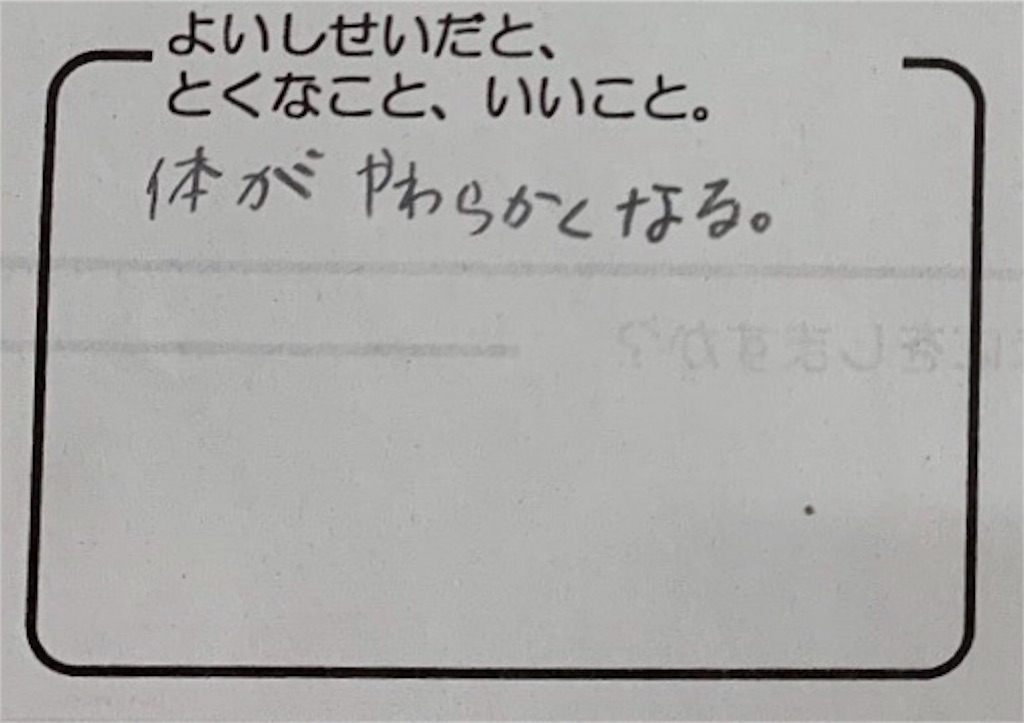 よいしせいだと、
とくなこと、いいこと。
体がやわらかくなる。
にをしますか？